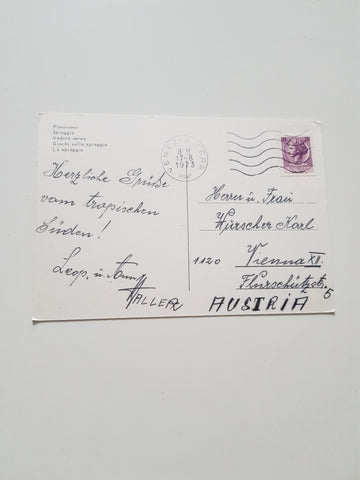 Panorama
Spiaggia
Veduta aerea
Giochi sulla spiaggia
La spiaggia
VENEZIA FERR.
17-8
1973
Herzliche Grüße
vom tropischen
Süden!
Leop. u.
Herrn u. Frau
Karl
1120 Vienna XII.
5
AUSTRIA